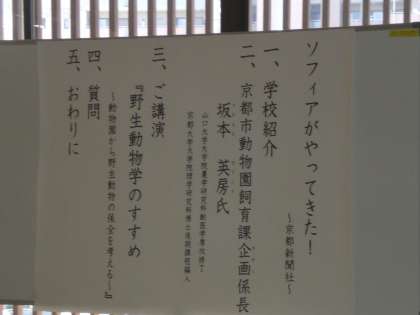 ソフィアがやってきた！
～京都新聞社～
一、学校紹介
二、京都市動物園飼育課企画係長
坂本　英房氏
山口大学大学院農学研究科獣医学専攻修了
京都大学大学院理学研究科博士後期課程編入
三、ご講演
『野生動物学のすすめ
～動物園から野生動物の保全を考える～』
四、質問
五、おわりに